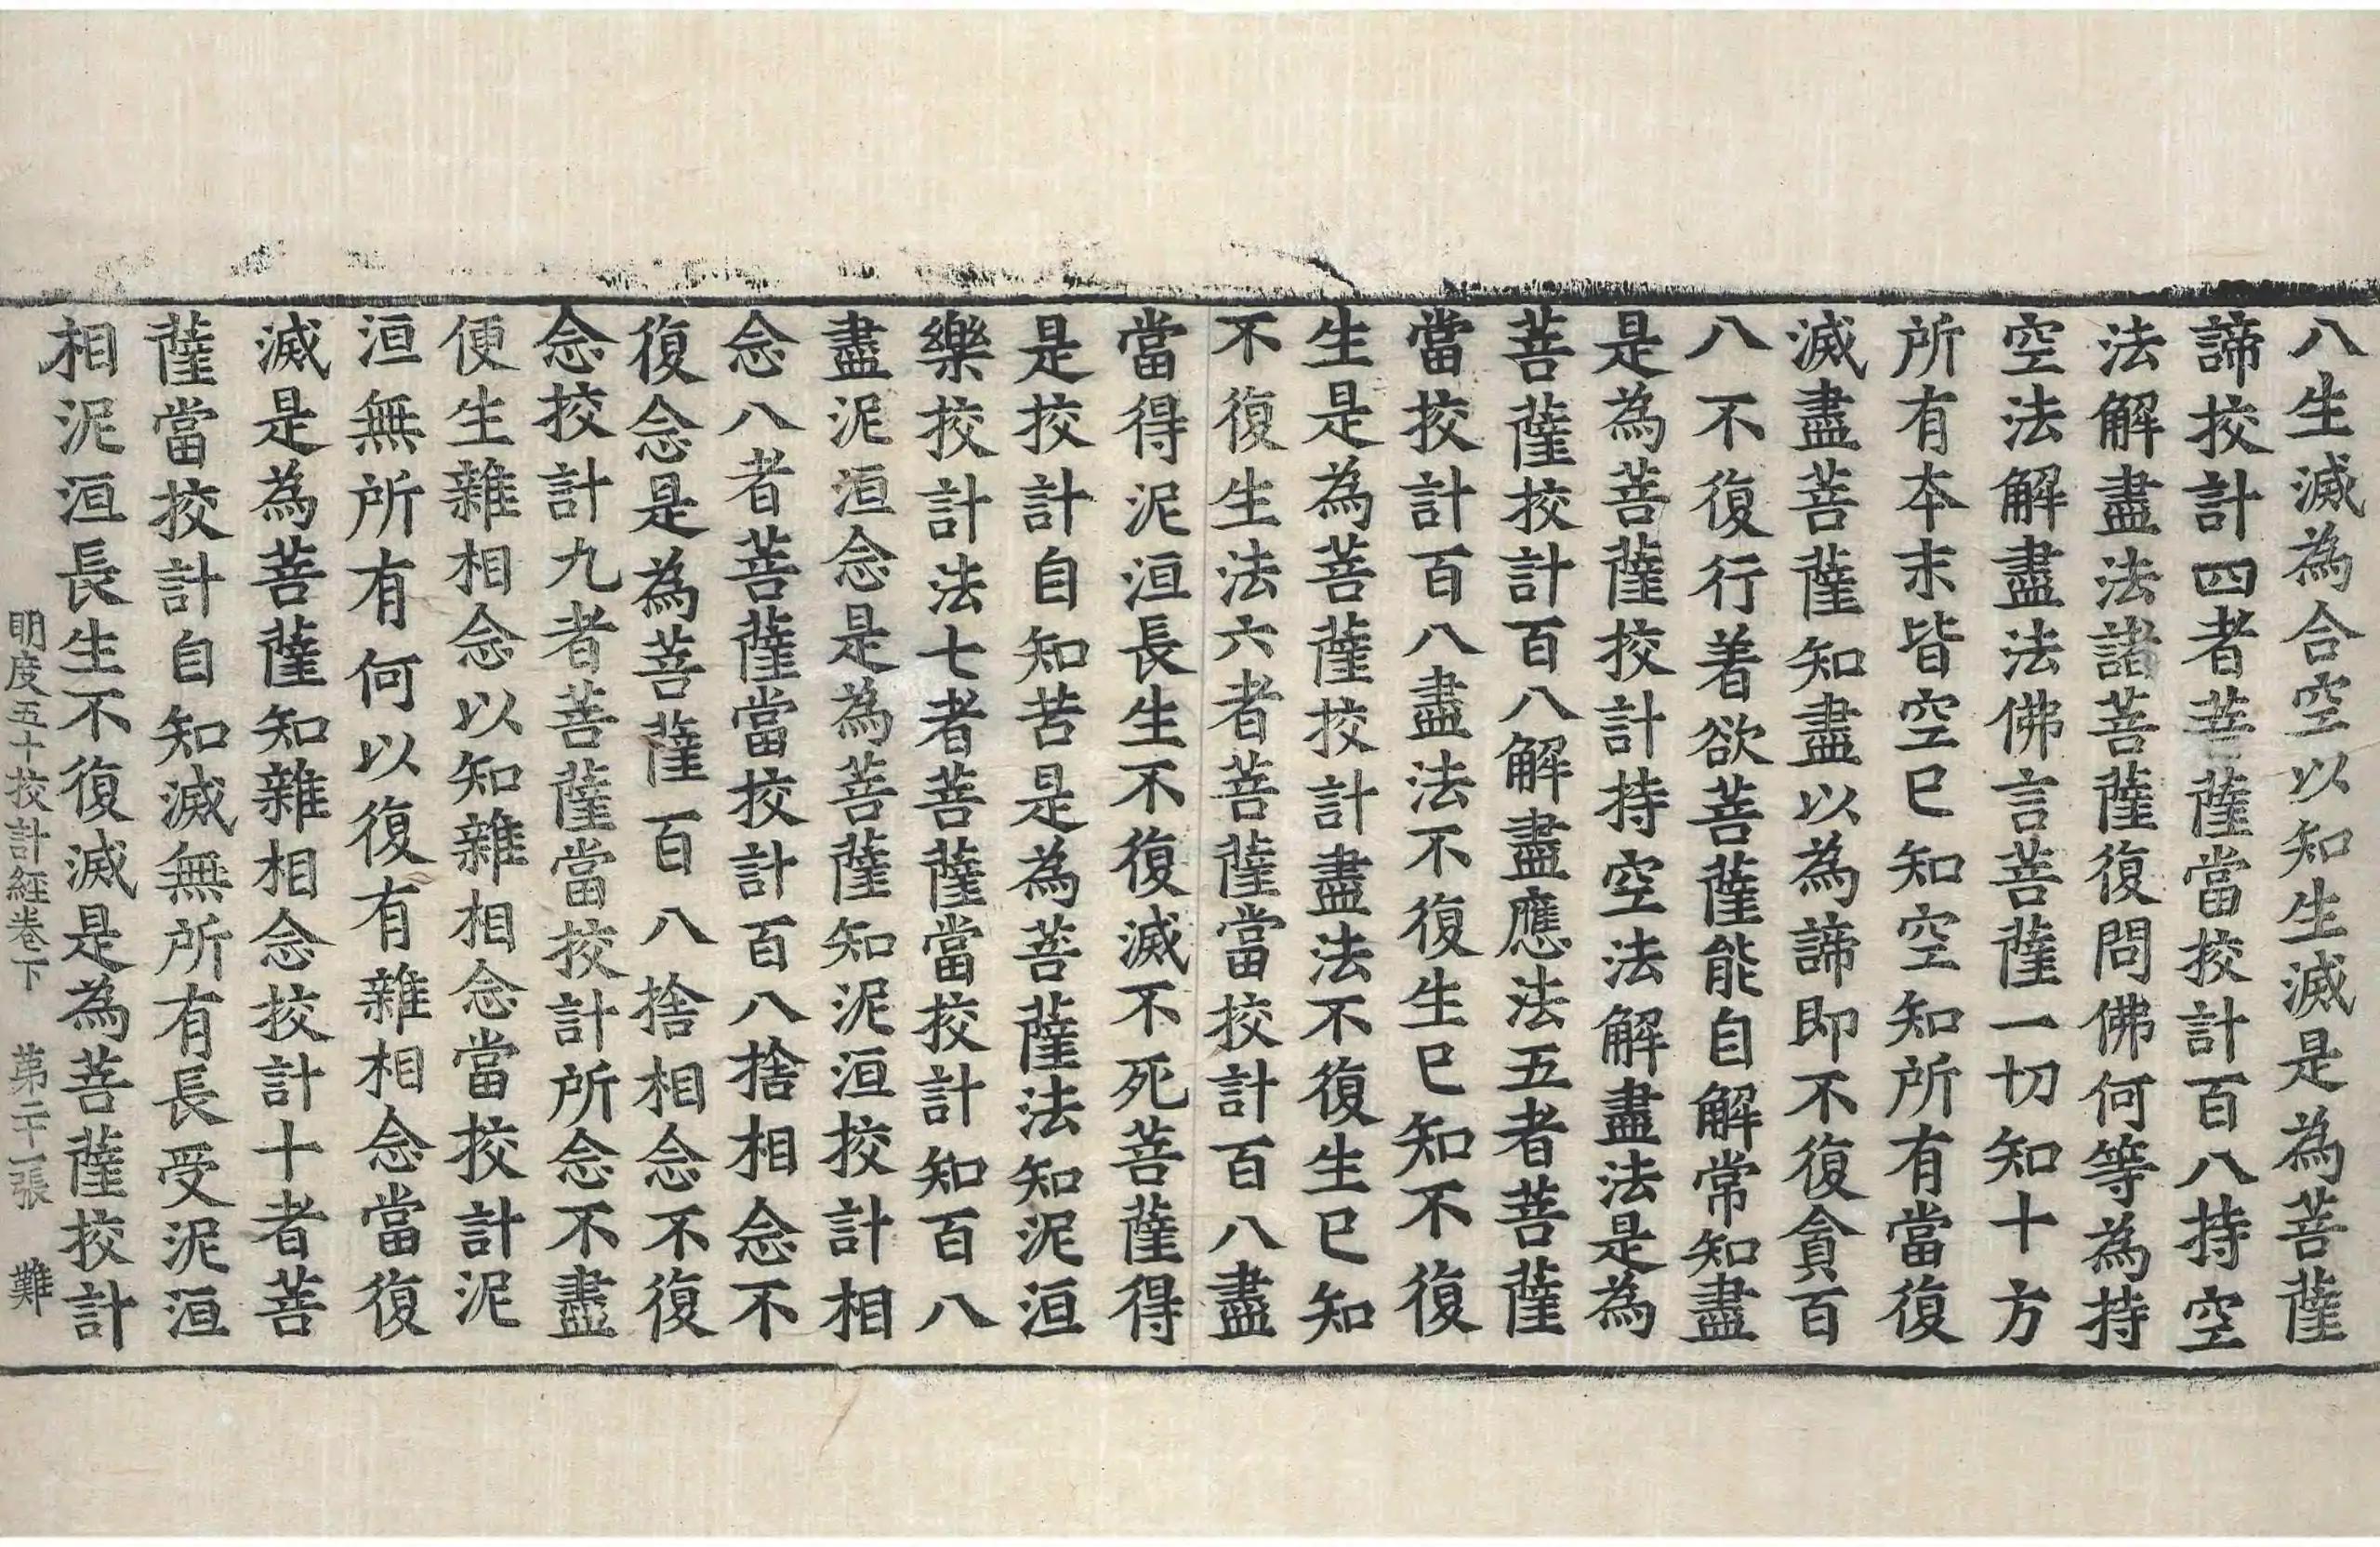 八生滅為合空以知生滅是為菩薩
諦挍計四者菩薩當挍計百八持空
法解盡法諸菩薩復問佛何等為持
空法解盡法佛言菩薩一切知十方
所有本末皆空已知空知所有當復
滅盡菩薩知盡以為諦即不復貪百
八不復行著欲菩薩能自解常知盡
是為菩薩挍計持空法解盡法是為
菩薩挍計百八解盡應法五者菩薩
當挍計百八盡法不復生已知不復
生是為菩薩挍計盡法不復生已知
不復生法六者菩薩當挍計百八盡
當得泥洹長生不復滅不死菩薩得
是挍計自知苦是為菩薩法知泥洹
樂挍計法七者菩薩當挍計知百八
盡泥洹念是為菩薩知泥洹挍計相
念八者菩薩當挍計百八捨相念不
復念是為菩薩百八捨相念不復
念挍計九者菩薩當挍計所念不盡
便生雜相念以知雜相念當挍計泥
洹無所有何以復有雜相念當復
滅是為菩薩知雜相念挍計十者菩
薩當挍計自知滅無所有長受泥洹
相泥洹長生不復滅是為菩薩挍計
明度五十挍計經卷下　第二十一張　難